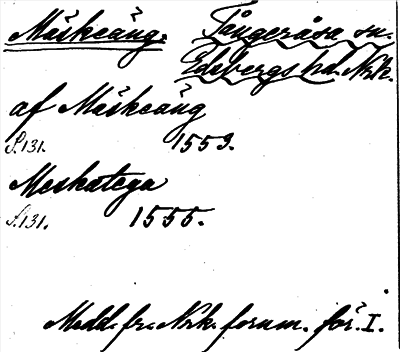 Mäskeäng. Tångeråsa sn.
Edsbergs hd. Nrk.
af Mäskeäng
S. 131. 1553.
Meskatega
S. 131. 1555.
Medd. fr. Nrk. fornm. för. I.